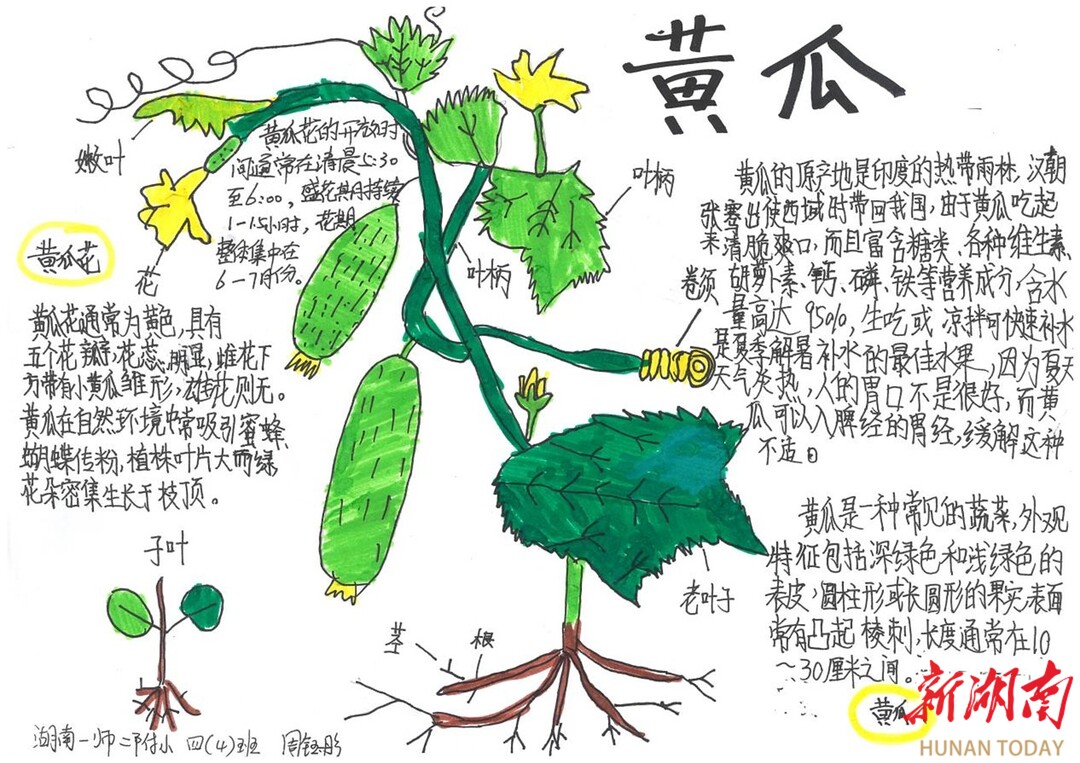 黄瓜
嫩叶
黄瓜花的开放时
间通常在清晨5:30
至6:00，盛花期持续
1-1.5小时，花期
整集中在
6-7月份。
叶柄
叶柄
花
卷须
黄瓜花
黄瓜花通常为黄色，具有
五个花瓣，花蕊明显，雌花下
方带有小黄瓜雏形，雄花则无。
黄瓜在自然环境中常吸引蜜蜂
蝴蝶传粉，植株叶片大而绿
花朵密集生长于枝顶。
黄瓜的原产地是印度的热带雨林，汉朝
张骞出使西域时带回我国，由于黄瓜吃起
来清脆爽口，而且富含糖类、各种维生素、
胡萝卜素、钙、磷、铁等营养成分，含水
量高达95%，生吃或凉拌可快速补水
是夏季解暑补水的最佳水果，因为夏天
天气炎热，人的胃口不是很好，而黄
瓜可以入脾经的胃经，缓解这种
不适。
黄瓜是一种常见的蔬菜，外观
特征包括深绿色和浅绿色的
表皮，圆柱形或长圆形的果实表面
常有凸起棱刺，长度通常在10
～30厘米之间。
黄瓜
子叶
老叶子
茎
根
湖南一师二附小 四(4)班 周钰彤
新湖南
HUNAN TODAY